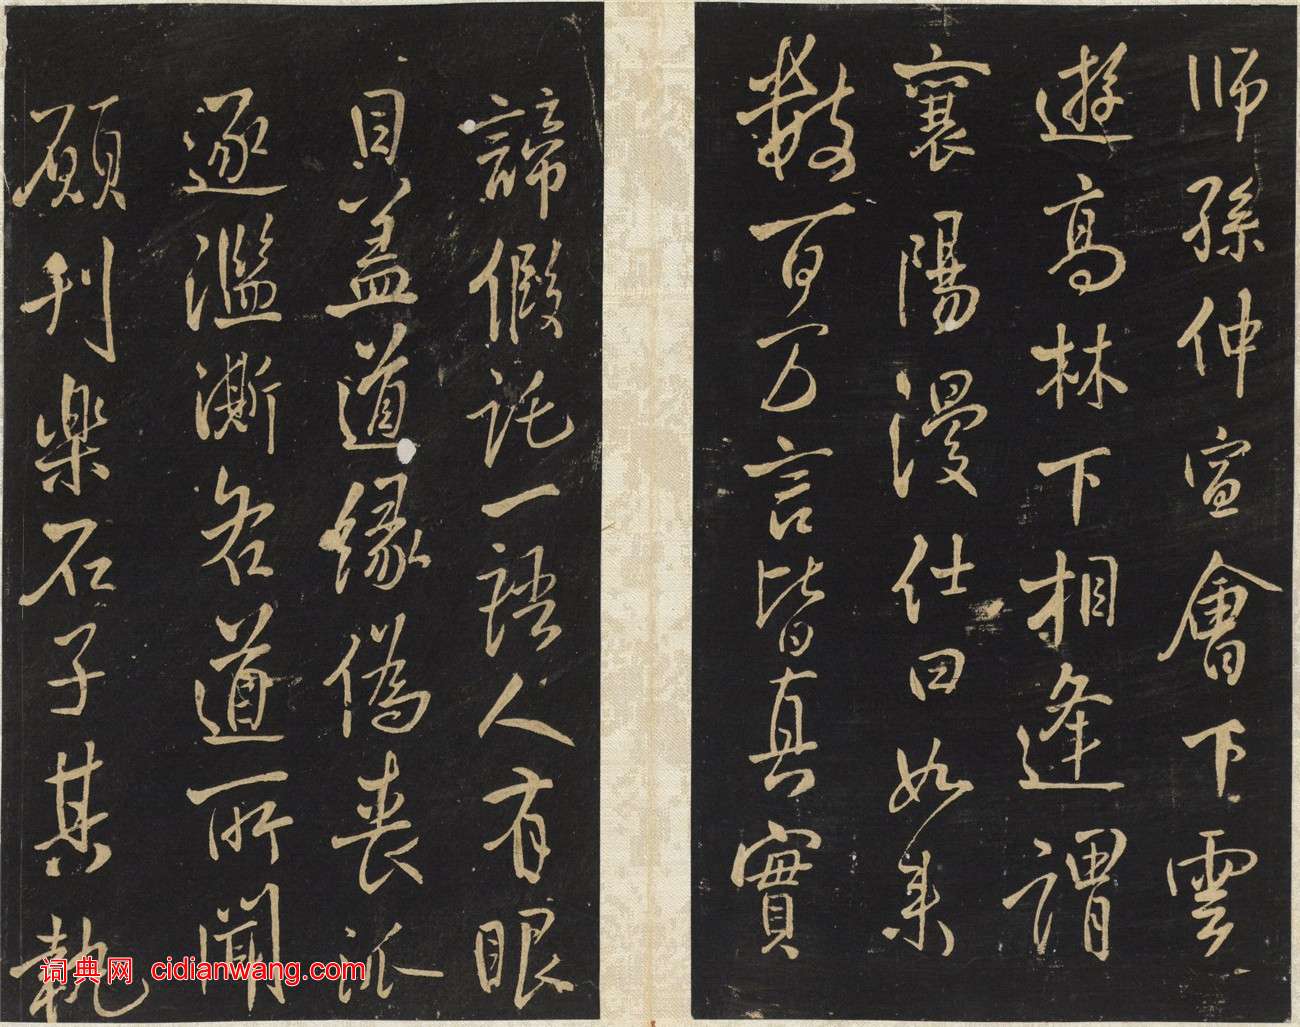 师孫仲宣會下雲
遊高林下相逢謂
襄陽漫仕曰如来
數百万言皆真實
諦假託一語人有眼
目盖道緣偽喪訛
逐濫澌各道所聞
願刊樂石子某執
词典网 cidianwang.com